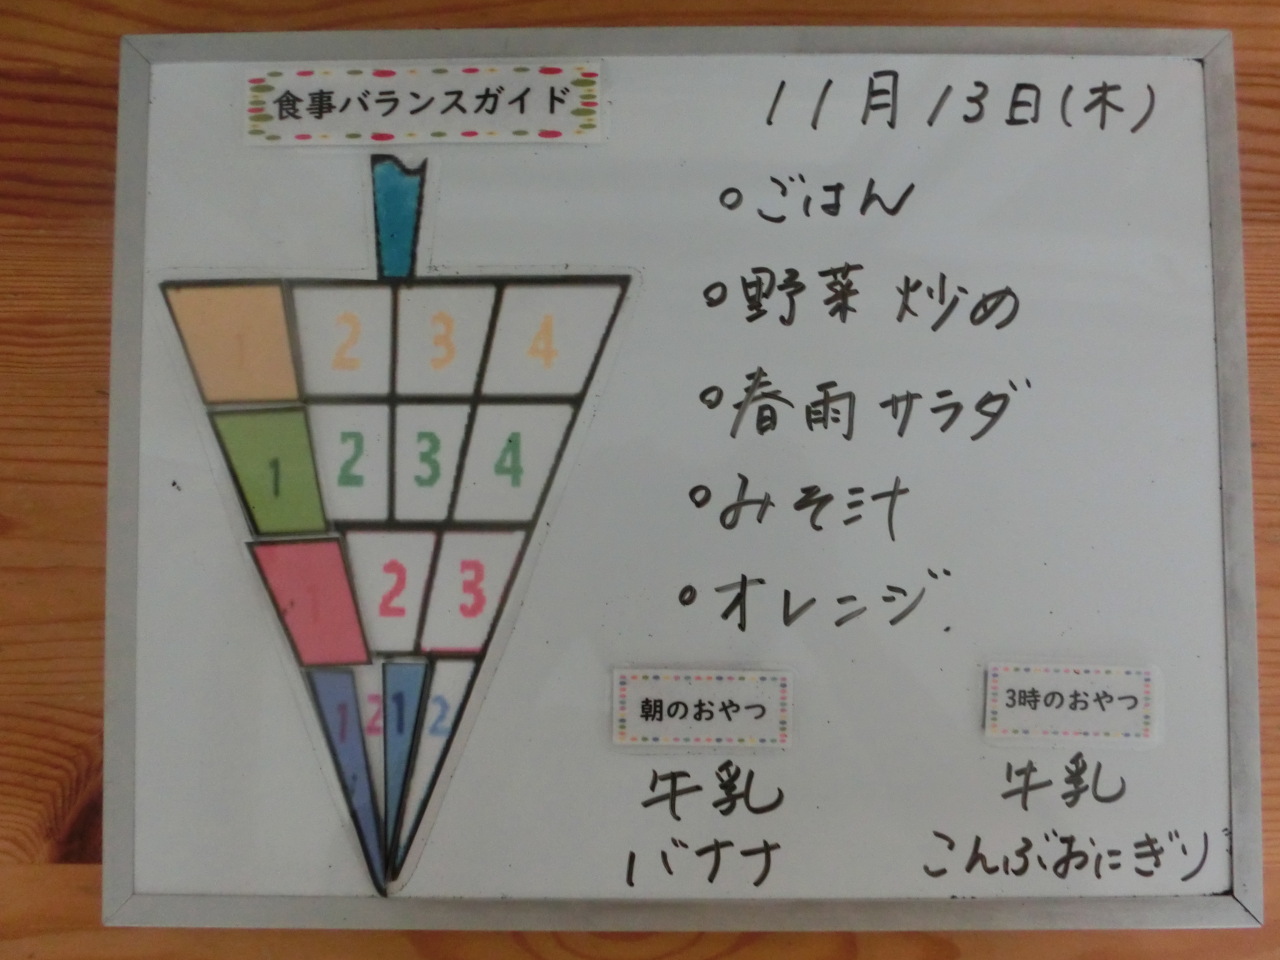 食事バランスガイド
11月13日(木)
ごはん
野菜炒め
春雨サラダ
みそ汁
オレンジ
1 2 3 4
1 2 3 4
1 2 3
1 2 1 2
朝のおやつ
牛乳
バナナ
3時のおやつ
牛乳
こんぶおにぎり